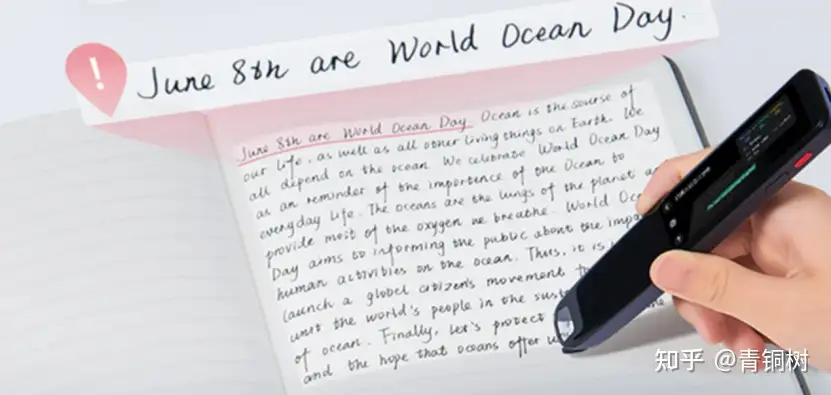 !
June 8th are World Ocean Day.
June 8th are World Ocean Day. Ocean is the sourse of
our life, as well as all other living things on Earth. We
all depend on the ocean. We celebrate World Ocean Day
as an reminder of the importence of the Ocean to
everyday life. The oceans are the lungs of the planet
provide most of the oxygen we breathe. World
Day aims to informing the public about the
human activities on the ocean. Thus, it is
launch a global citizen's movement
unit the world's people in the
of ocean. Finally, let's protect the
and the hope that oceans offer
知乎 @青铜树